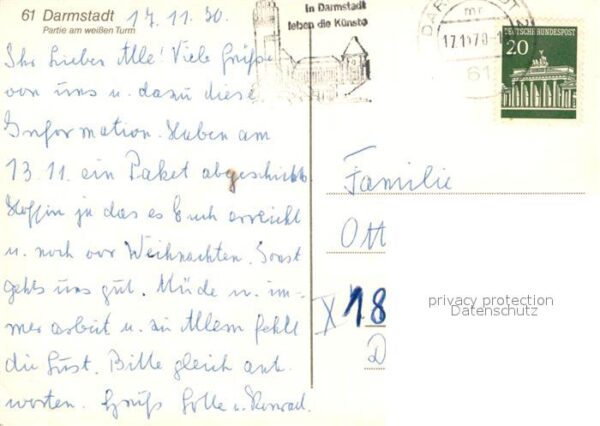 61 Darmstadt
Partie am weißen Turm
17.11.70.
Ihr Lieben Alle! Viele Grüße
von uns u. dazu diese
Information. Haben am
13.11. ein Paket abgeschickt
Hoffen ja das es Euch erreicht
u. noch vor Weihnachten. Sonst
gehts uns gut. Müde u. im-
mer arbeit u. zu Allem fehlt
die Lust. Bitte gleich ant-
worten. Grüß Lotte u. Konrad.
In Darmstadt
leben die Künste
DARMSTADT
mr
17.11.70-1
61
DEUTSCHE BUNDESPOST
20
Familie
Ott
X 18
D
privacy protection
Datenschutz